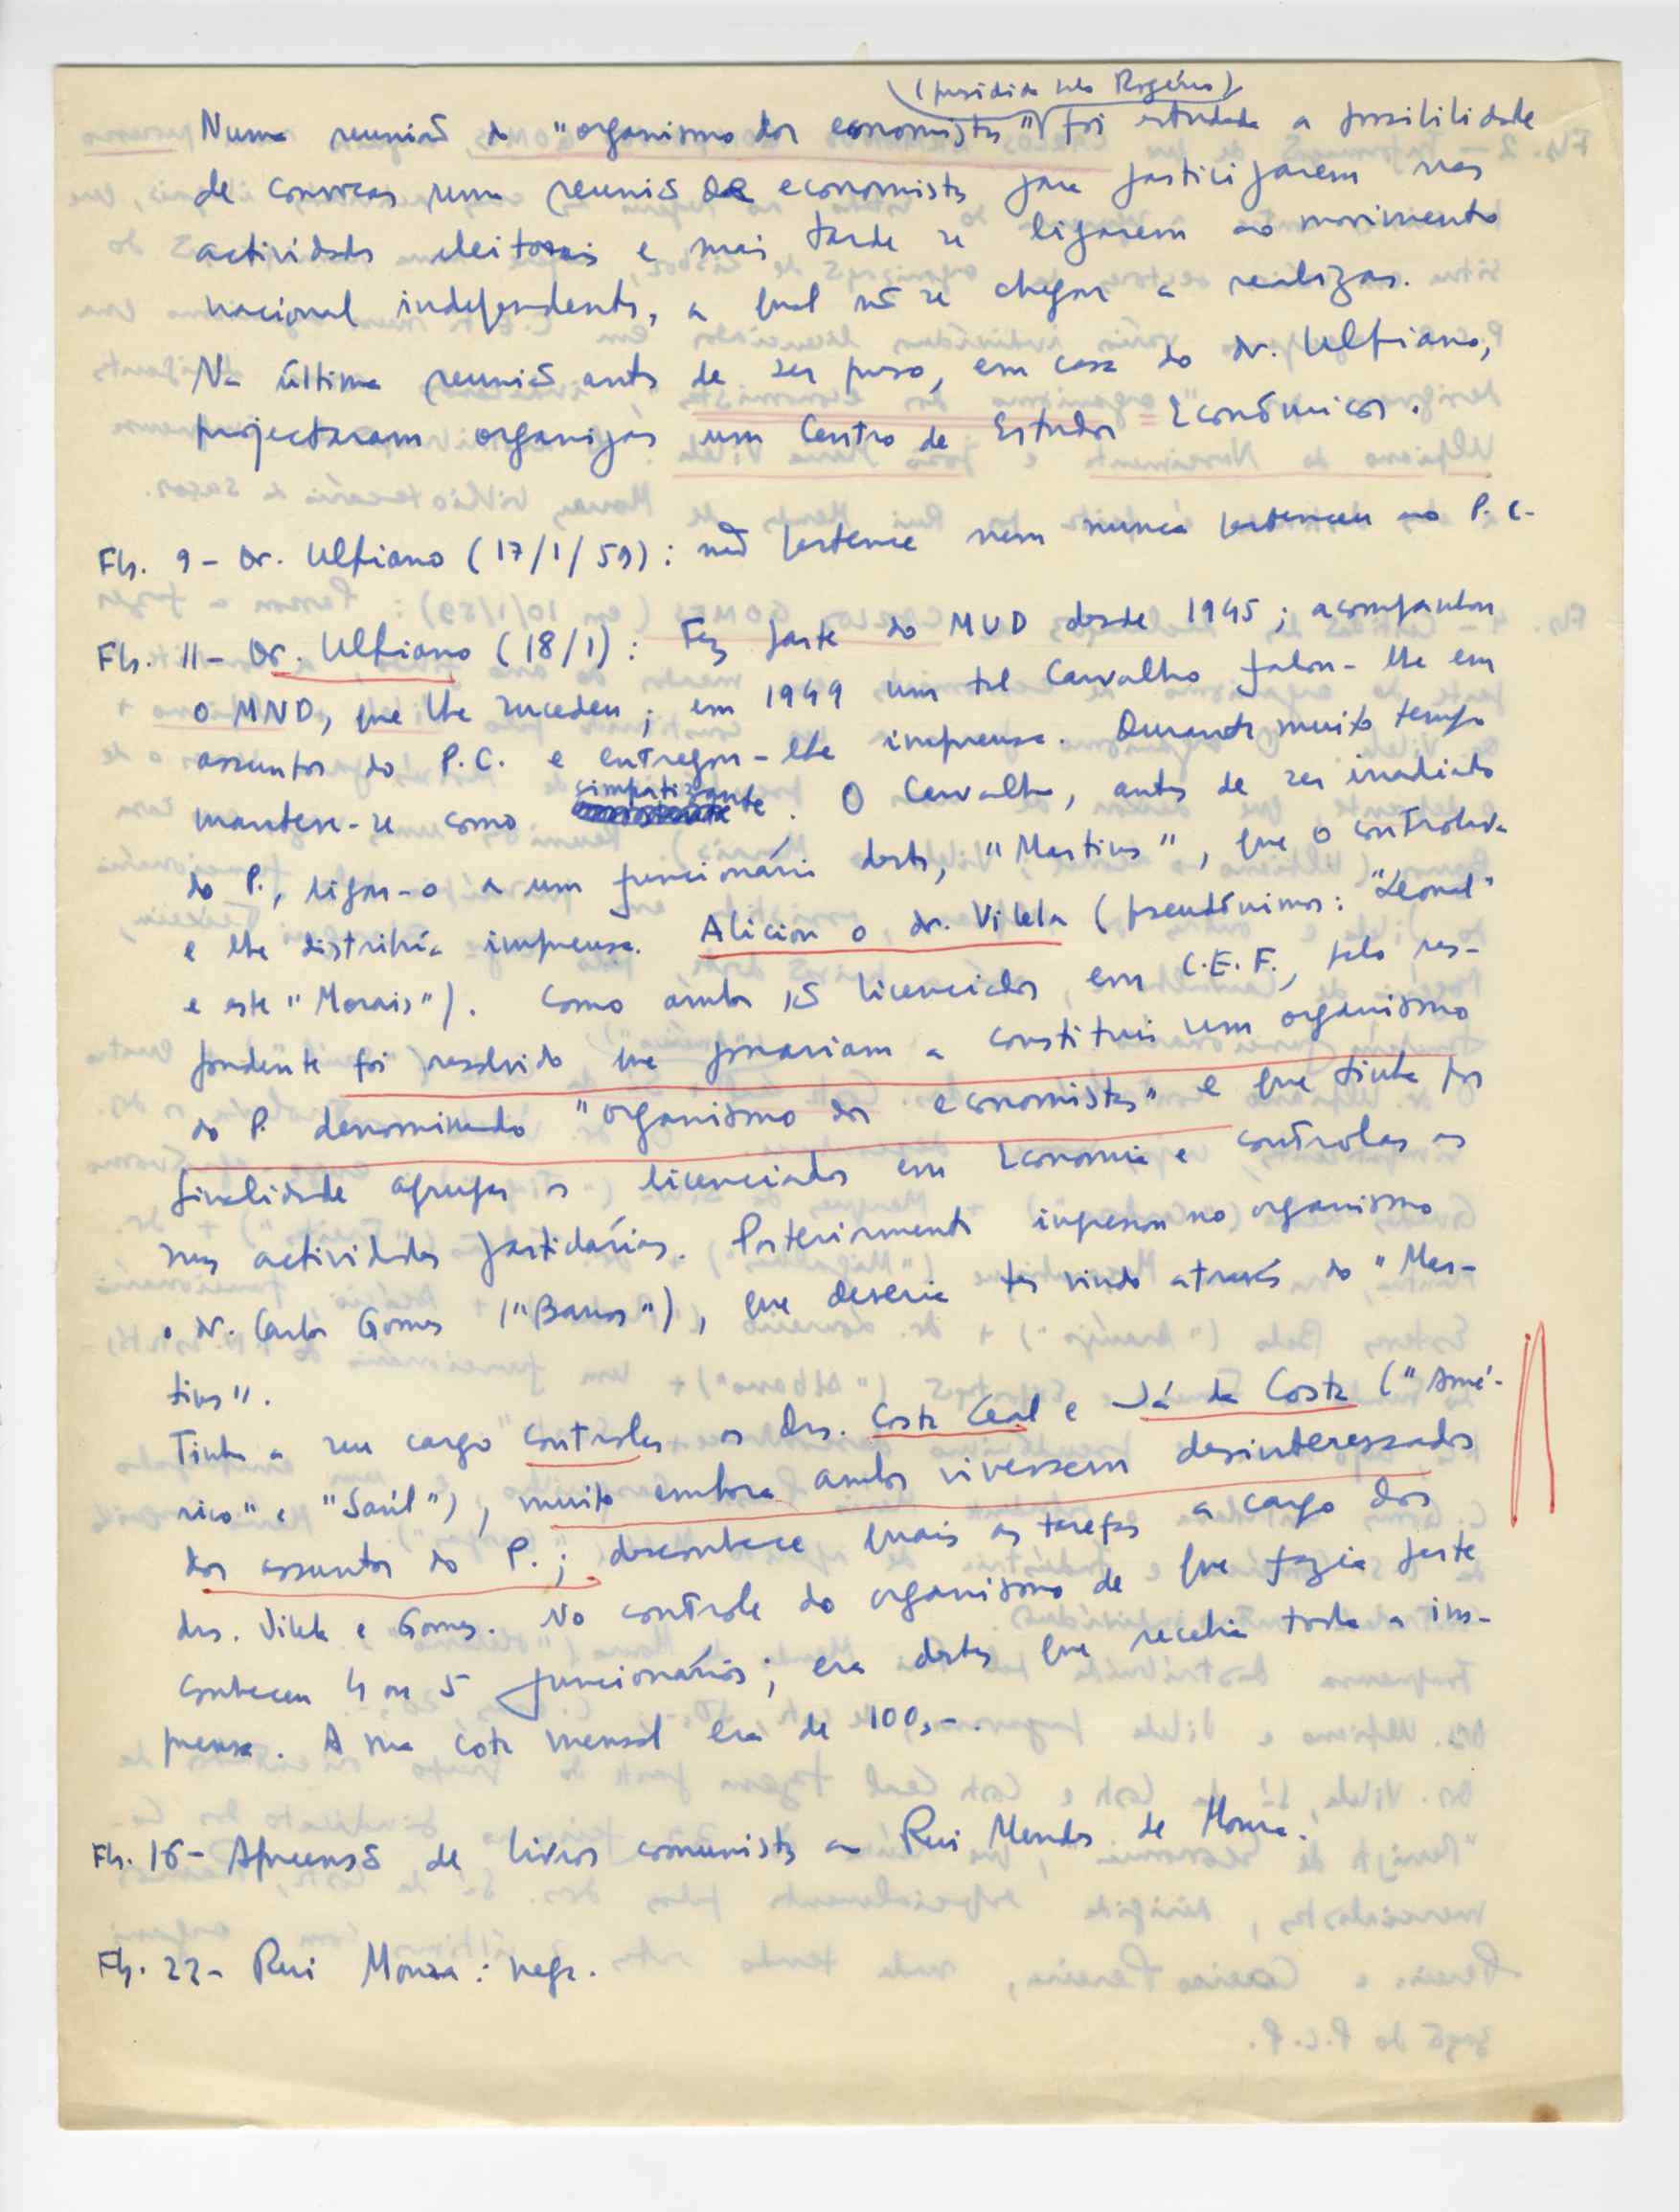 (presidida pelo Rogério)
Numa reunião do "organismo dos economistas" foi estudada a possibilidade
de convocar uma reunião de economistas para participarem nas
actividades eleitorais e mais tarde se ligarem ao movimento
nacional independente, a qual não se chegou a realizar.
Na última reunião antes de ser preso, em casa do dr. Ulpiano,
projectaram organizar um Centro de Estudos Económicos.
Fls. 9 - Dr. Ulpiano (17/1/59): não pertence nem nunca pertenceu ao P.C.
Fls. 11 - Dr. Ulpiano (18/1): Fez parte do MUD desde 1945; acompanhou
o MND, que lhe sucedeu; em 1949 um tal Carvalho falou-lhe em
assuntos do P.C. e entregou-lhe imprensa. Durante muito tempo
manteve-se como simpatizante. O Carvalho, antes de ser irradiado
do P., ligou-o a um funcionário deste, "Martins", que o controlava
e lhe distribuía imprensa. Aliciou o dr. Vilela (pseudónimos: "Leonel"
e este "Morais"). Como ambos são licenciados em C.E.F., pelo res-
pondente foi resolvido que passariam a constituir um organismo
do P. denominado "organismo dos economistas" e que tinha por
finalidade agrupar os licenciados em Economia e controlar as
suas actividades partidárias. Posteriormente ingressou no organismo
o dr. Carlos Gomes ("Barros"), que deveria ter vindo através do "Mar-
tins".
Tinha a seu cargo controlar os Drs. Costa Leal e Sá da Costa ("Amé-
rico" e "Saúl"), muito embora ambos vivessem desinteressados
dos assuntos do P.; desconhece quais as tarefas a cargo dos
drs. Vilela e Gomes. No controle do organismo de que fazia parte
conheceu 4 ou 5 funcionários; era destes que recebia toda a im-
prensa. A sua cota mensal era de 100,-.
Fls. 16 - Apreensão de livros comunistas ao Rui Mendes de Moura.
Fls. 22 - Rui Moura: nega.